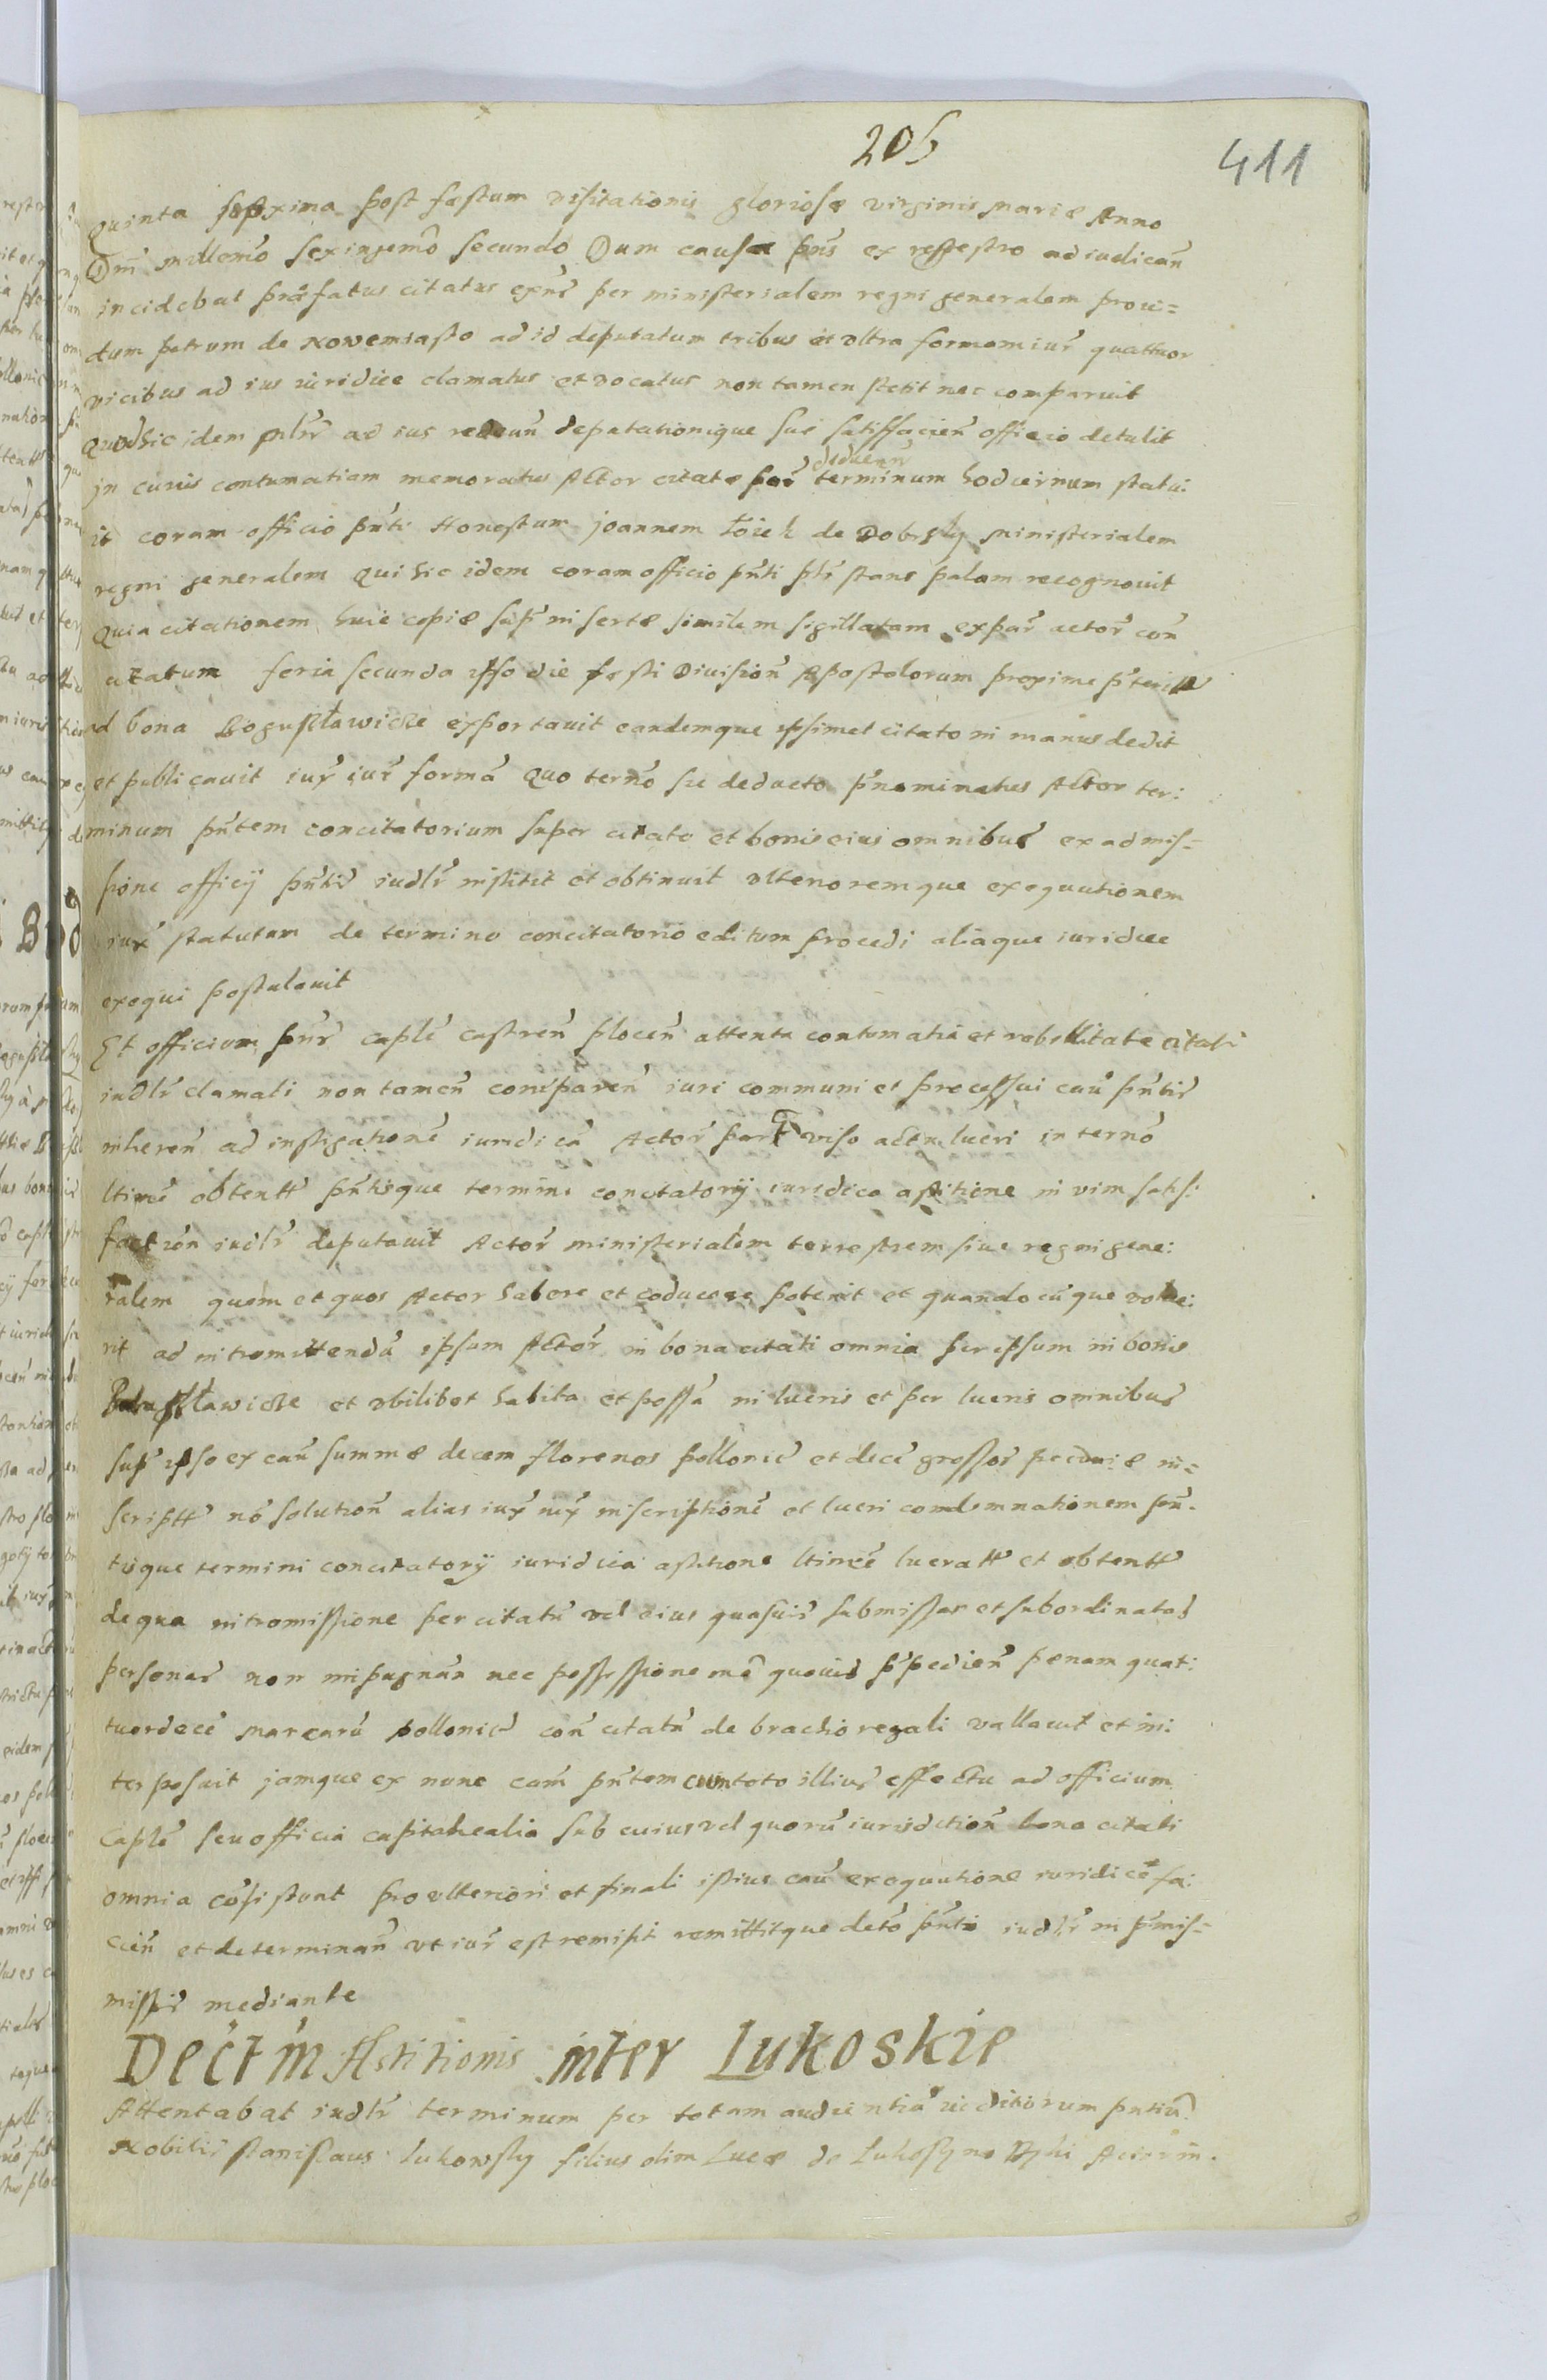 205
411
quinta proxima post festum Visitationis gloriosæ virginis Mariæ Anno
Dni Millemo sexingemo secundo Dum causa pns ex regestro adiudican
incidebat præfatus citatus exns per ministerialem regni generalem proui=
dum petrum de Novemiasto ad id deputatum tribus et vltra formam iur quattuor
vicibus ad ius iuridice clamatus et vocatus non tamen stetit nec comparuit
Quod hic idem mlr ad ius redeun deputationique suæ satisfacien officio detulit
in cuius contumatiam memoratus Actor citatæ par deducen terminum hodiernum statu:
it coram officio pnti Honestum joannem de Dobrsky Ministerialem
regni generalem qui hic idem coram officio pnti plr stans palam recognouit
Quia citationem huic copiæ sup insertæ similem sigillatam ex par actor con
citatum feria secunda ipso die festi Division Apostolorum proxime pterita
ad bona Bogusławicze exportauit eandemque ipsimet citato in manus dedit
et publicauit iux iur forma Quo terno sic deducto pnominatus Actor ter:
minum pntem concitatorium super citato et bonis eius omnibus ex admis=
sione officij pntis iudlr institit et obtinuit vlterioremque exequutionem
iux statutum de termino concitatorio editum procedi aliaque iuridice
exequi postulauit
Et officium pns caple castren plocen attenta contumatia et rebellitate citati
iudlr clamati non tamen comparen iuri communi et processui cau pntis
inheren ad instigatione iuridica Actor part viso actu lucri in terno
ltime obtentt pntisque termini concitatorij iuridica astitione in vim satis:
faction iudlr deputauit Actor ministerialem terrestrem siue regni gene:
ralem quem et quos Actor habere et coducere poterit et quandocuque volue:
rit ad intromittenda ipsum Actor in bona citati omnia per ipsum in bonis
Bogusławicze et vbilibet habita et possa in lucris et per lucris omnibus
sup ipso ex cau summæ decem florenos pollonic et dece grossos pecuniæ in=
scriptt no solution alias iux inscriptione et lucri condemnationem pn-
tisque termini concitatorij iuridica astitione ltime lucratt et obtentt
de qua intromissione per citatu vel eius quasuis submissas et subordinatas
personas non impugnan nec possessione me quouis ppedien penam quat:
tuordece Marcaru pollonic con citatu de brachio regali vallauit et in:
terposuit jamque ex nunc cam pntem cum toto illius effectu ad officium
caple seu officia capitanealia sub cuius vel quoru iurisdiction bona citati
omnia cosistunt pro vlteriori et finali istius cau exequutione iuridice fa:
cien et determinan vt iur est remisit remittitque deto pnti iudlr in pmis=
missis mediante
Dectm Astitionis inter Lukoskie
Attentabat iudlr terminum per totam audientia iuditiorum pntiu
Nobilis stanislaus Lukowsky filius olim Lucæ de Lukoszyno